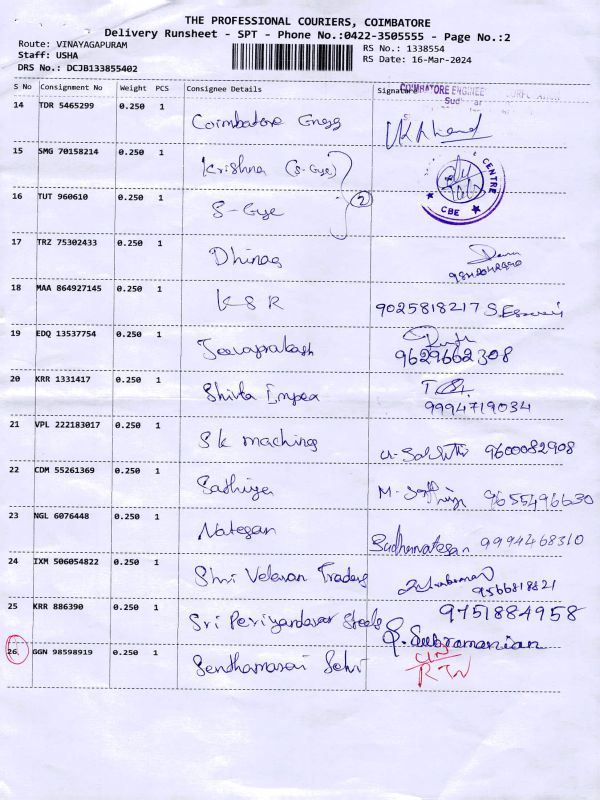 THE PROFESSIONAL COURIERS, COIMBATORE
Delivery Runsheet - SPT - Phone No.:0422-3505555 - Page No.:2
Route: VINAYAGAPURAM
RS No.: 1338554
Staff: USHA
RS Date: 16-Mar-2024
DRS No.: DCJB133855402
S No Consignment No Weight PCS Consignee Details Signature
COIMBATORE ENGINEE
14 TDR 5465299 0.250 1 Coimbatore Engg
15 SMG 70158214 0.250 1 Krishna (S-Gye)
CENTRE
CBE
16 TUT 960610 0.250 1 S-Gye 2
17 TRZ 75302433 0.250 1 Dhinag
18 MAA 864927145 0.250 1 KSR 9025818217
19 EDQ 13537754 0.250 1 Jeevaprakash 9629662308
20 KRR 1331417 0.250 1 Shiva Impex 9994719034
21 VPL 222183017 0.250 1 SK maching 9600082908
22 CDM 55261369 0.250 1 Sathiya M. 9655496630
23 NGL 6076448 0.250 1 Natesan Sudhernatesan 9994468310
24 IXM 506054822 0.250 1 Shri Velavan Traders 9566818821
25 KRR 886390 0.250 1 Sri Periyandavar Steels 9751884958
S. Subramanian
26 GGN 98598919 0.250 1 Senthamarai Selvi
RTN